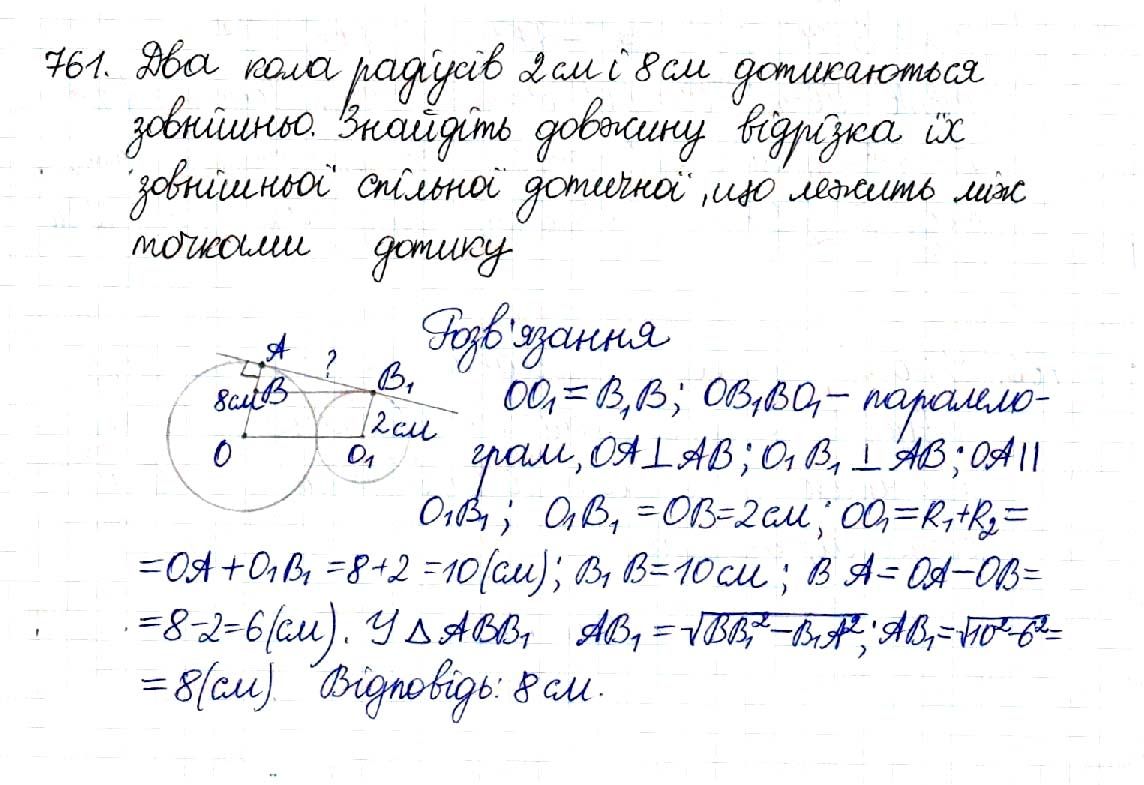 761. Два кола радіусів 2 см і 8 см дотикаються
зовнішньо. Знайдіть довжину відрізка їх
зовнішньої спільної дотичної, що лежить між
точками дотику
Розв'язання
A
?
B₁
8см
B
2 см
O
O₁
OO₁ = B₁B; OB₁BO₁ – паралело-
грам, OA ⊥ AB; O₁B₁ ⊥ AB; OA ||
O₁B₁; O₁B₁ = OB = 2 см; OO₁ = R₁ + R₂ =
= OA + O₁B₁ = 8 + 2 = 10 (см); B₁B = 10 см; BA = OA – OB =
= 8 – 2 = 6 (см). У △ ABB₁ AB₁ = √BB₁² – B₁A²; AB₁ = √10² – 6² =
= 8 (см) Відповідь: 8 см.